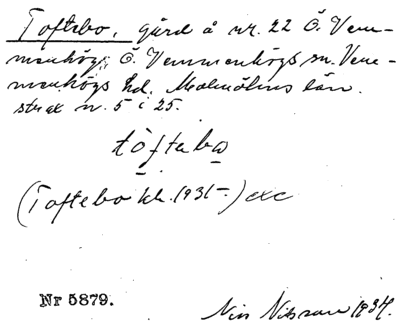 Toftebo, gård å nr. 22 Ö. Vem-
menhög, Ö. Vemmenhögs sn. Vem-
menhögs hd. Malmöhus län.
strax n. 5 i 25.
töftabo
(Toftebo kk. 1931-) exc
Nr 5879.
Nils Nilsson 1934.